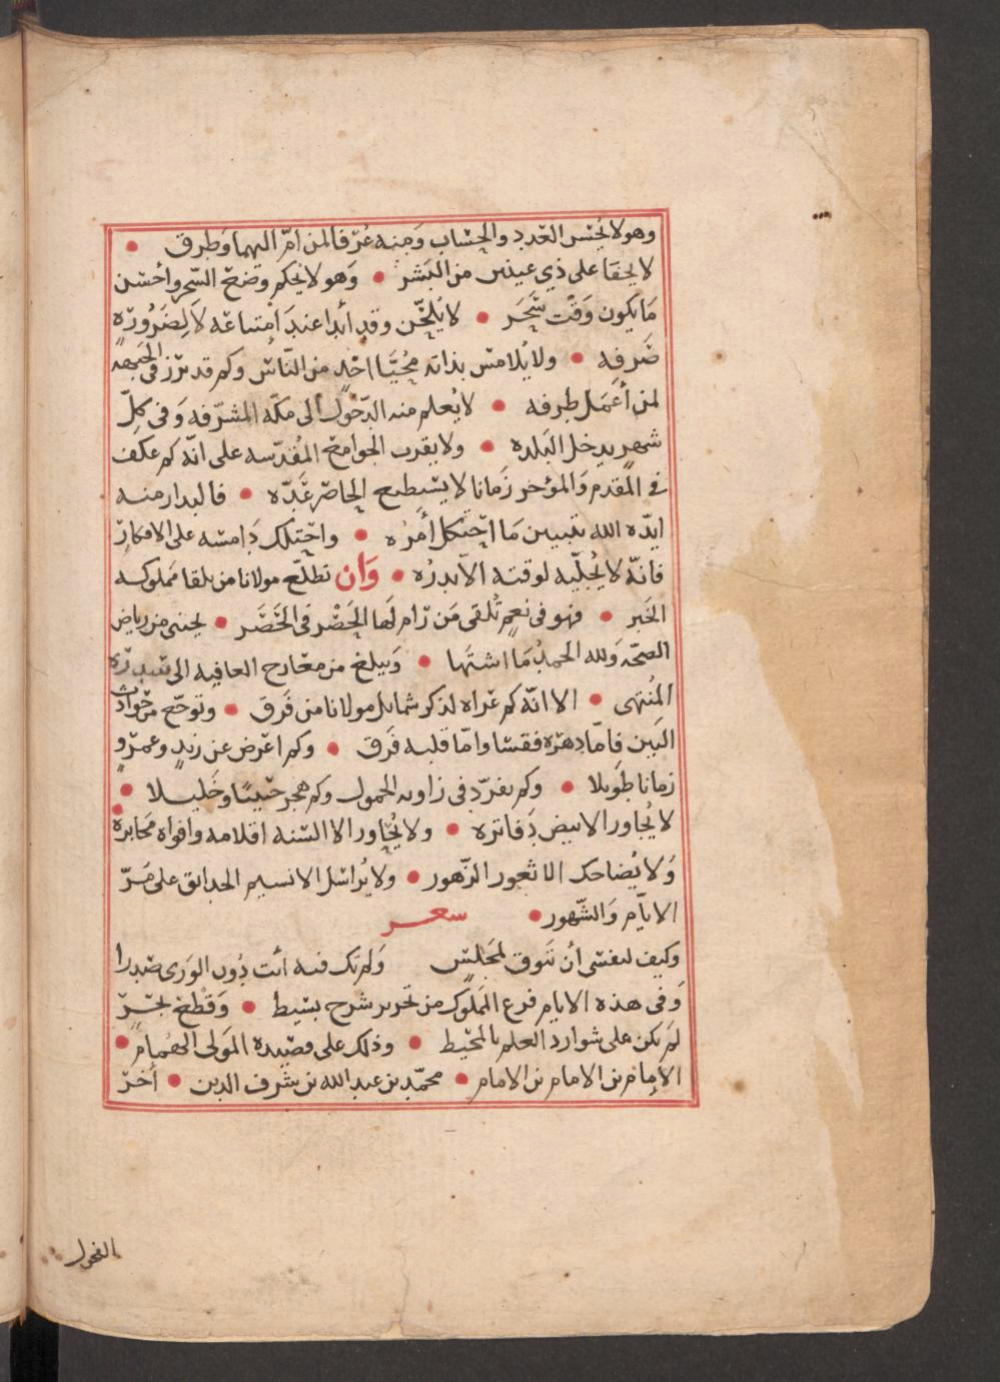 وهو لا يحسن العدد والحساب ومنه عرفا لمن امّ اليهما وطرق •
لا يخفا على ذي عينين من البشر • وهو لا يحكم وضع السحر وأحسن
ما يكون وقت سَحَر • لا يُلحَّن وقد أبدا عند امتناعه لا لِضَرُورَةٍ
صَرفه • ولا يلامس بذاته مُحيّا احد من الناس وكم قد برز في الجبهه
لمن أعمل طرفه • لا يُعلم منه الدّخول ألى مكّه المشرّفه وفي كلّ
شهر يدخل البلده • ولا يقرب الجوامع المُقدّسه على انّه كم عكف
في المقدم والمؤخر زمانا لا يسطيع الحاصر عَدّه • فالبدار منه
ايدّه الله بتبيين مَا احتكل أمرُه • واحتلك دَامسه على الافكار
فانّه لا يُجلّيه لوقته الا بدرُه • وَان تطلّع مولانا من تلقا مملوكه
الخَبر • فهو في نعم تُلقى مَن رام لَها الحَصْر في الحَصَر • يجنى من رياض
الصحّه ولله الحمدُ مَا اشتَها • وَيبلغ من معَارج العافيه الى سدرة
المُنتهى • الا انّه كم عَراه لذكر شمايل مولانا من فَرق • وتوجّع من حَوادث
البَين فامّا دهره فقسَا وامّا قلبه فَرَق • وكم اعرَض عن زيدٍ وعمرٍو
زمانا طَويلا • وكم تفرّد في زاويه الخمول وكم هجر حَبيبًا وخَليلا •
لا يُجاور الا بيض دَفاتره • ولا يُحاور الا السنه اقلامه وافواه محَابره
وَلا يُضاحك الا ثغور الزّهور • ولا يُراسل الا نسيم الحدايق على مَرّ
الايّام وَالشّهور • سعر
وكيف لنفسى أن تَتوق لمَجلسٍ وَلم تك فيه أنت دُون الورى صَدرا
وَفى هذه الايام فرغ المَملوك من تحرير شرح بسَيط • وَقطع بحَرّ
لم يكن على شوارد العلم بالمحَيط • وذلك على قصيدة المَولى الهُمام •
الإمام بن الامام بن الامام • محمّد بن عبد الله بن شرف الدين • أخرّ
الفحول